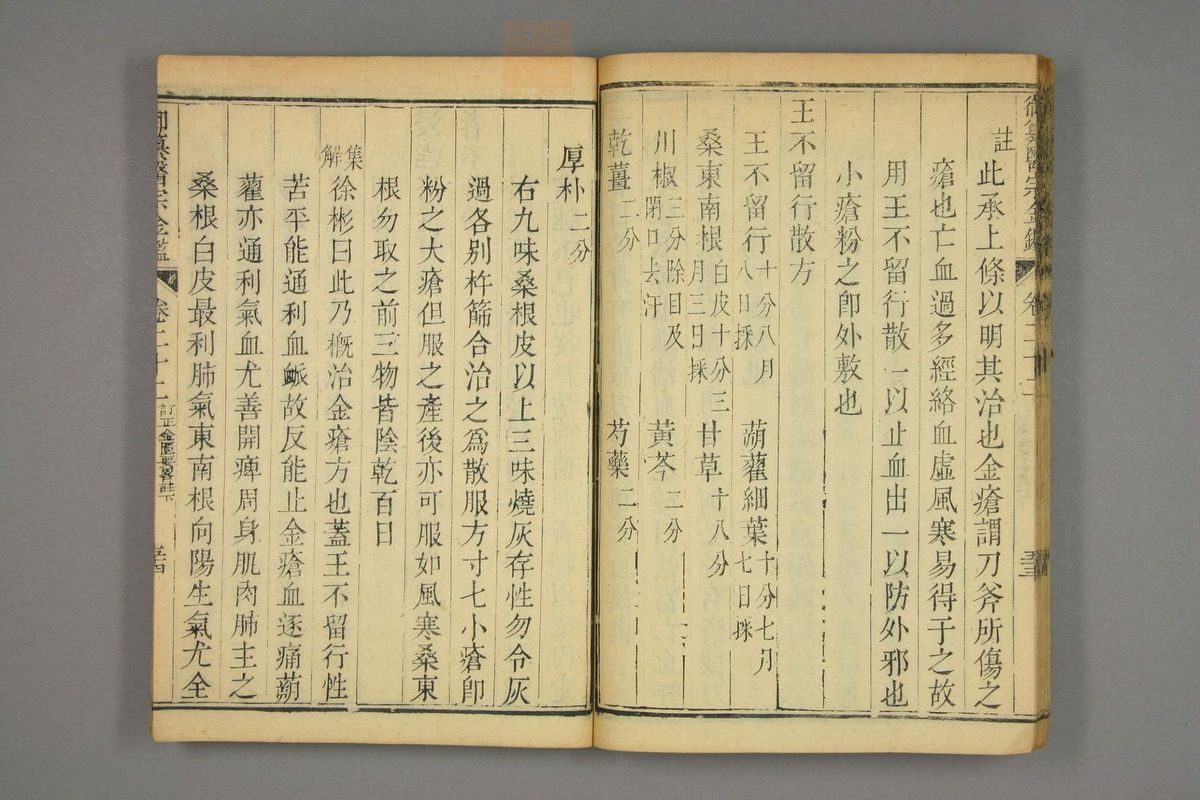 御纂醫宗金鑑 卷二十二 五三
註 此承上條以明其治也金瘡謂刀斧所傷之
瘡也亡血過多經絡血虛風寒易得干之故
用王不留行散一以止血出一以防外邪也
小瘡粉之卽外敷也
王不留行散方
王不留行 十分八月八日採 蒴藋細葉 十分七月七日採
桑東南根 白皮十分三月三日採 甘草 十八分
川椒 三分除目及閉口去汗 黃芩 二分
乾薑 二分 芍藥 二分
厚朴 二分
右九味桑根皮以上三味燒灰存性勿令灰
過各別杵篩合治之爲散服方寸七小瘡卽
粉之大瘡但服之產後亦可服如風寒桑東
根勿取之前三物皆陰乾百日
集解 徐彬曰此乃概治金瘡方也蓋王不留行性
苦平能通利血脈故反能止金瘡血逐痛蒴
藋亦通利氣血尤善開痺周身肌肉肺主之
桑根白皮最利肺氣東南根向陽生氣尤全
御纂醫宗金鑑 卷二十二 訂正金匱要畧註下 五四